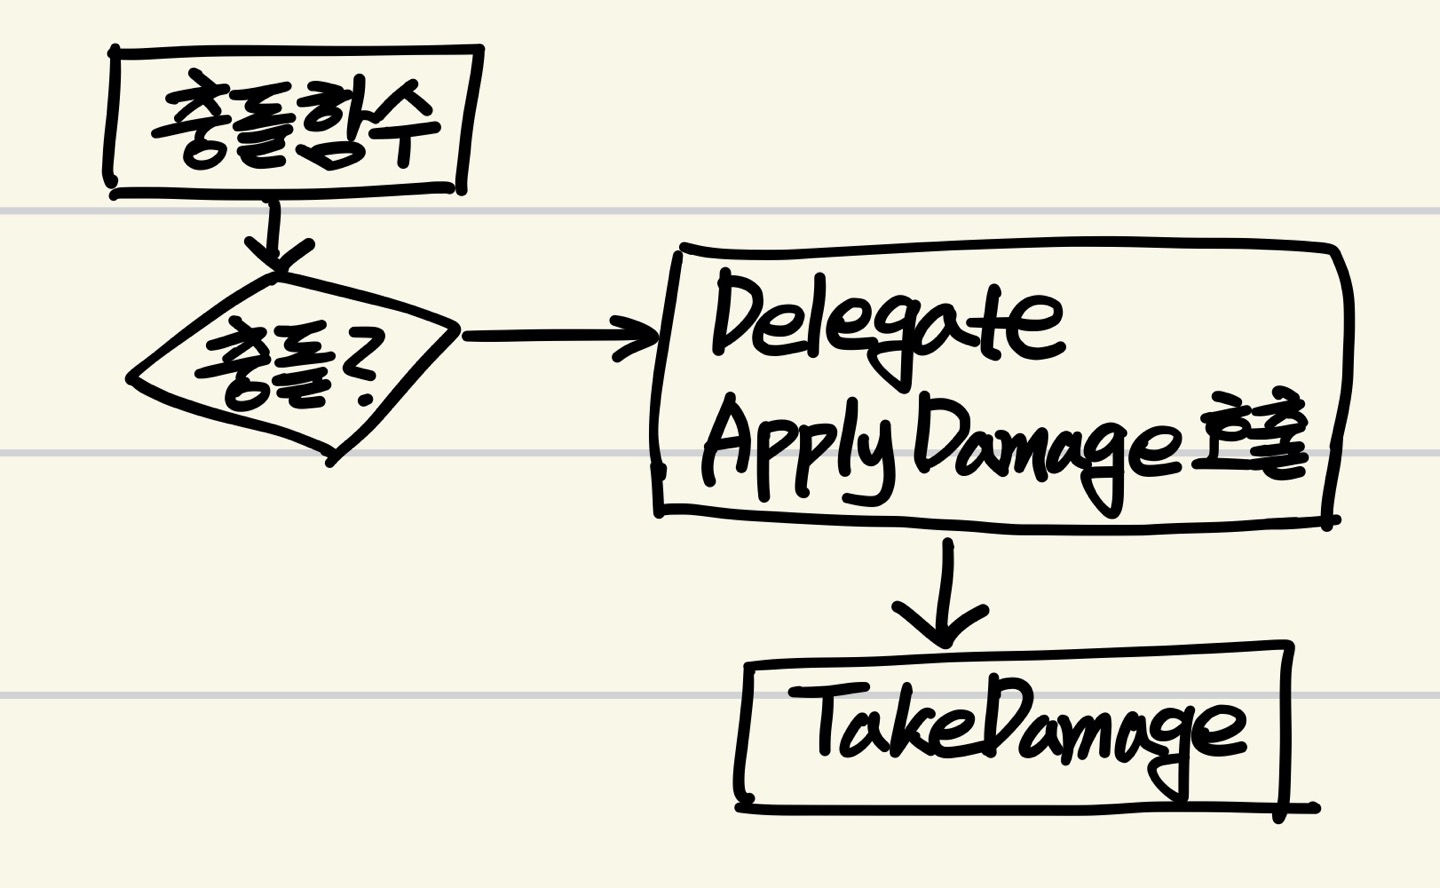 충돌함수
충돌?
Delegate
Apply Damage 호출
TakeDamage